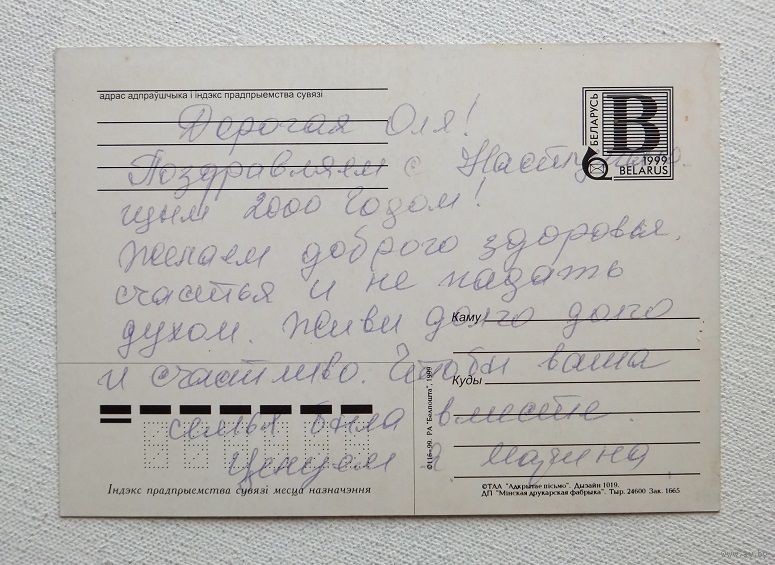 адрас адпраўшчыка і індэкс прадпрыемства сувязі
БЕЛАРУСЬ
B
1999
BELARUS
Дорогая Оля!
Поздравляем с Наступаю-
щим 2000 Годом!
Желаем доброго здоровья,
счастья и не падать
духом. Живи долго долго
и счастливо. Чтобы ваша
семья была вместе.
Целуем я, Марина
Каму
Куды
©116–99. РА "Белпошта". 1999
Індэкс прадпрыемства сувязі месца назначэння
©ТАА "Адкрытае пісьмо". Дызайн 1019.
ДП "Мінская друкарская фабрыка". Тыр. 24600 Зак. 1665
www.ay.by